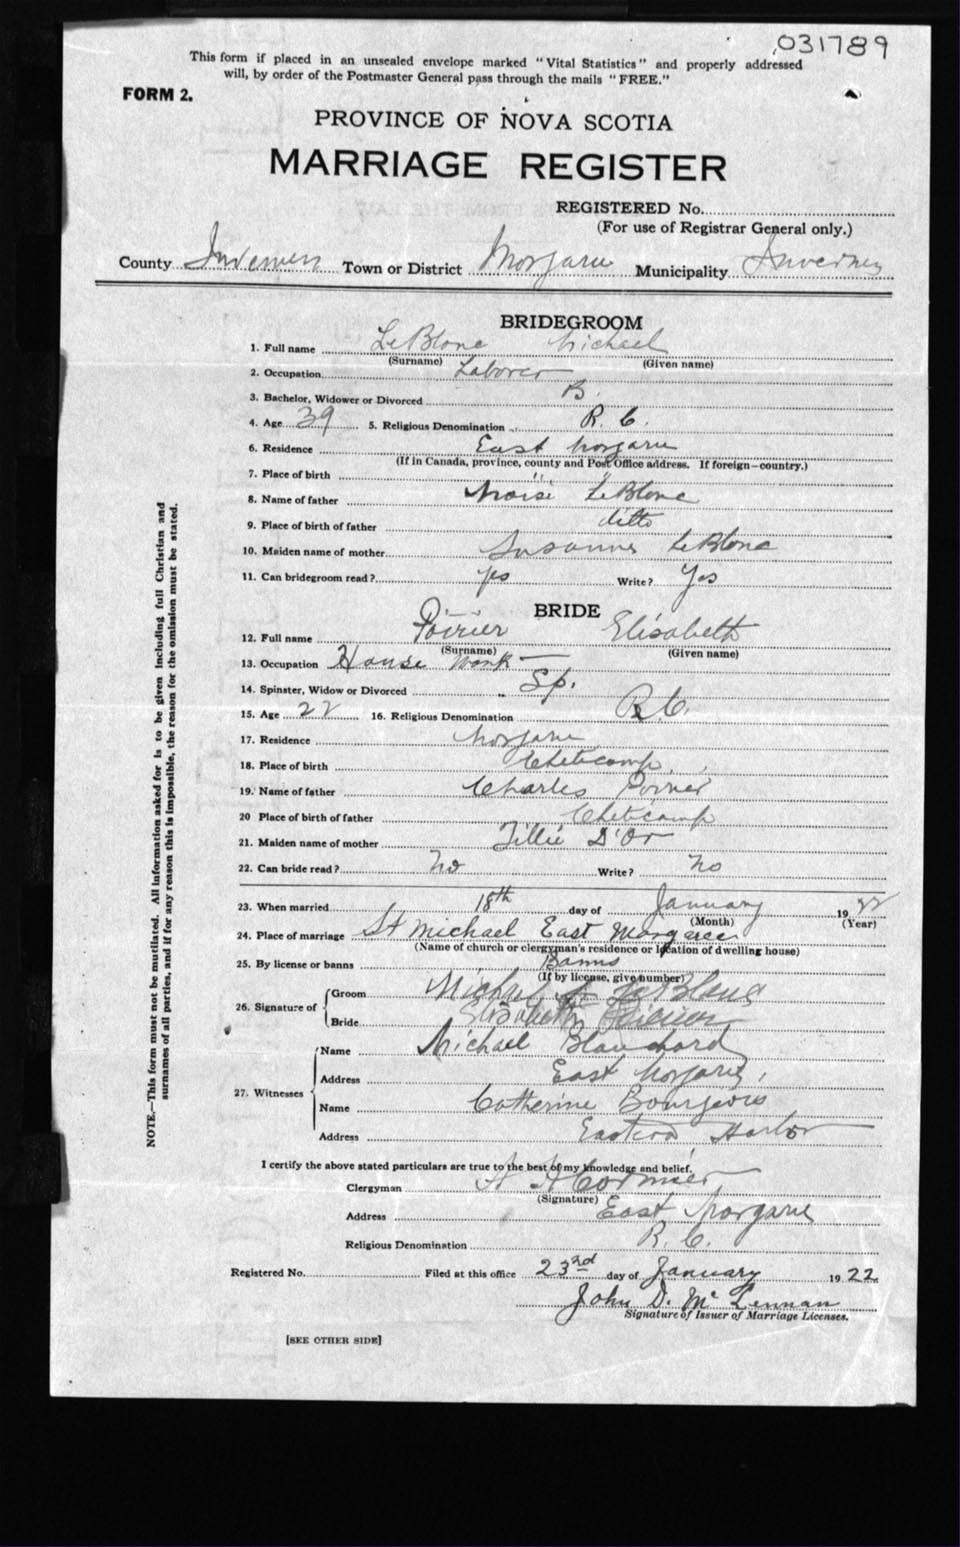 031789
This form if placed in an unsealed envelope marked "Vital Statistics" and properly addressed
will, by order of the Postmaster General pass through the mails "FREE."
FORM 2.
PROVINCE OF NOVA SCOTIA
MARRIAGE REGISTER
REGISTERED No.
(For use of Registrar General only.)
County Inverness Town or District Margaree Municipality Inverness
BRIDEGROOM
1. Full name LeBlanc Michael
(Surname) (Given name)
2. Occupation Laborer
3. Bachelor, Widower or Divorced B.
4. Age 39 5. Religious Denomination R. C.
6. Residence East Margaree
(If in Canada, province, county and Post Office address. If foreign—country.)
7. Place of birth " "
8. Name of father Moise LeBlanc
9. Place of birth of father ditto
10. Maiden name of mother Susanne LeBlanc
11. Can bridegroom read? Yes Write? Yes
BRIDE
12. Full name Poirier Elisabeth
(Surname) (Given name)
13. Occupation House Work
14. Spinster, Widow or Divorced Sp.
15. Age 22 16. Religious Denomination R.C.
17. Residence Margaree
18. Place of birth Cheticamp
19. Name of father Charles Poirier
20 Place of birth of father Cheticamp
21. Maiden name of mother Tillie D'Or
22. Can bride read? No Write? No
23. When married 18th day of January 1922
(Month) (Year)
24. Place of marriage St Michael East Margaree
(Name of church or clergyman's residence or location of dwelling house)
25. By license or banns Banns
(If by license, give number)
26. Signature of Groom Michael LeBlanc
Bride Elisabeth Poirier
27. Witnesses Name Michael Blanchard
Address East Margaree
Name Catherine Bourgeois
Address Eastern Harbor
I certify the above stated particulars are true to the best of my knowledge and belief.
Clergyman A A Cormier
(Signature)
Address East Margaree
Religious Denomination R. C.
Registered No. Filed at this office 23rd day of January 1922
John D. McLennan
Signature of Issuer of Marriage Licenses.
[SEE OTHER SIDE]
NOTE.—This form must not be mutilated. All information asked for is to be given including full Christian and
surnames of all parties, and if for any reason this is impossible, the reason for the omission must be stated.